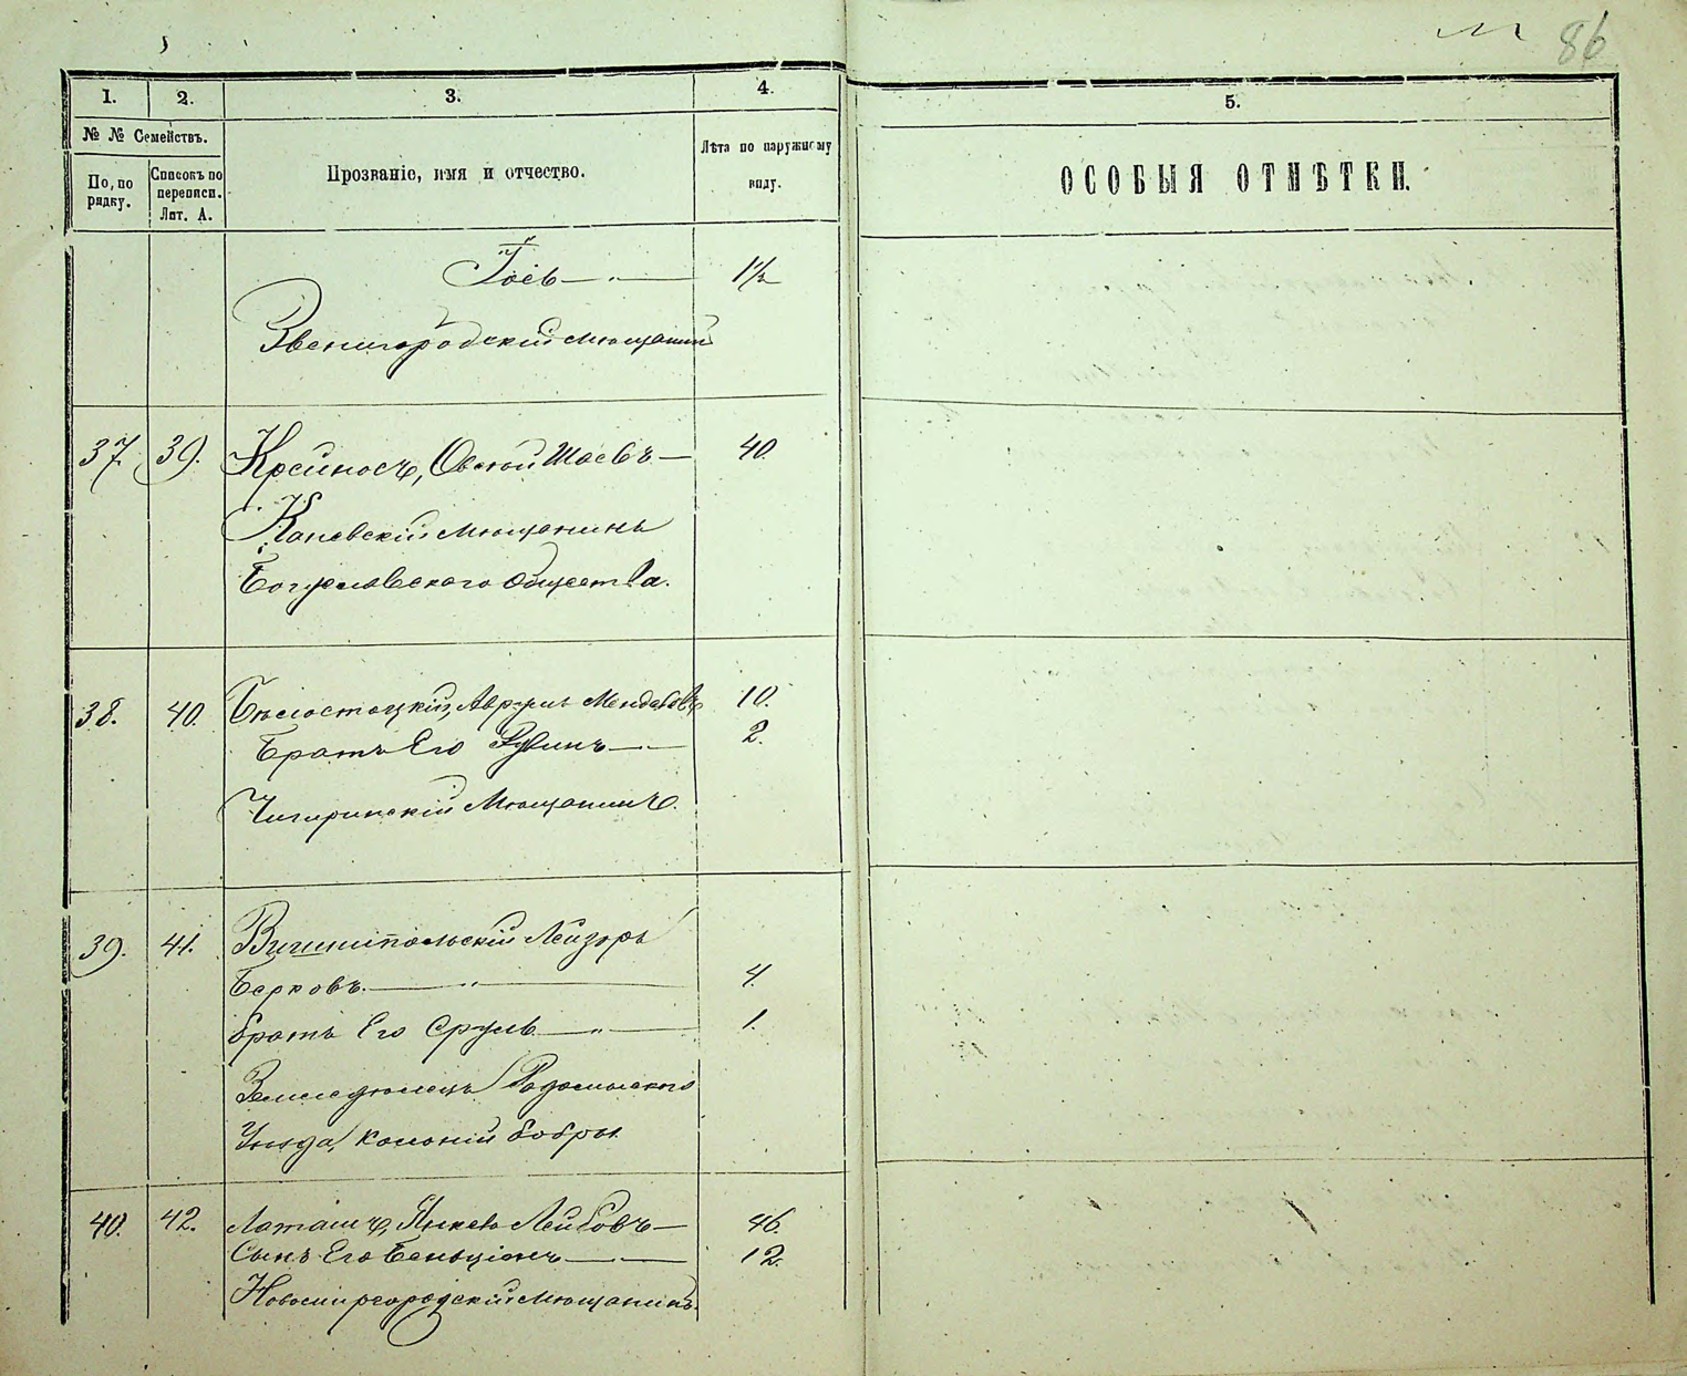 86
1.
2.
3.
4.
5.
№ № Семействъ.
По, по рядку.
Списокъ по переписи. Лит. А.
Прозваніе, имя и отчество.
Лѣта по наружному виду.
ОСОБЫЯ ОТМѢТКИ.
1½
Звенигородскій мѣщанинъ
37. 39. Крейносъ, Овсей Шаевъ — 40.
Каневскій мѣщанинъ
Богуславскаго общества.
38. 40. Бѣлостоцкій, Аврумъ Менделевъ 10.
Братъ Его Рувинъ — 2.
Чигиринскій Мѣщанинъ.
39. 41. Лейзоръ
Берковъ. — " — 4.
братъ Его Сруль — " — 1.
Земледѣлецъ Радомысльского
Уѣзда, колоніи бобры.
40. 42. Латашъ, Янкель Лейбовъ — 46.
Сынъ Его Бенціонъ — 12.
Новомиргородскій мѣщанинъ.